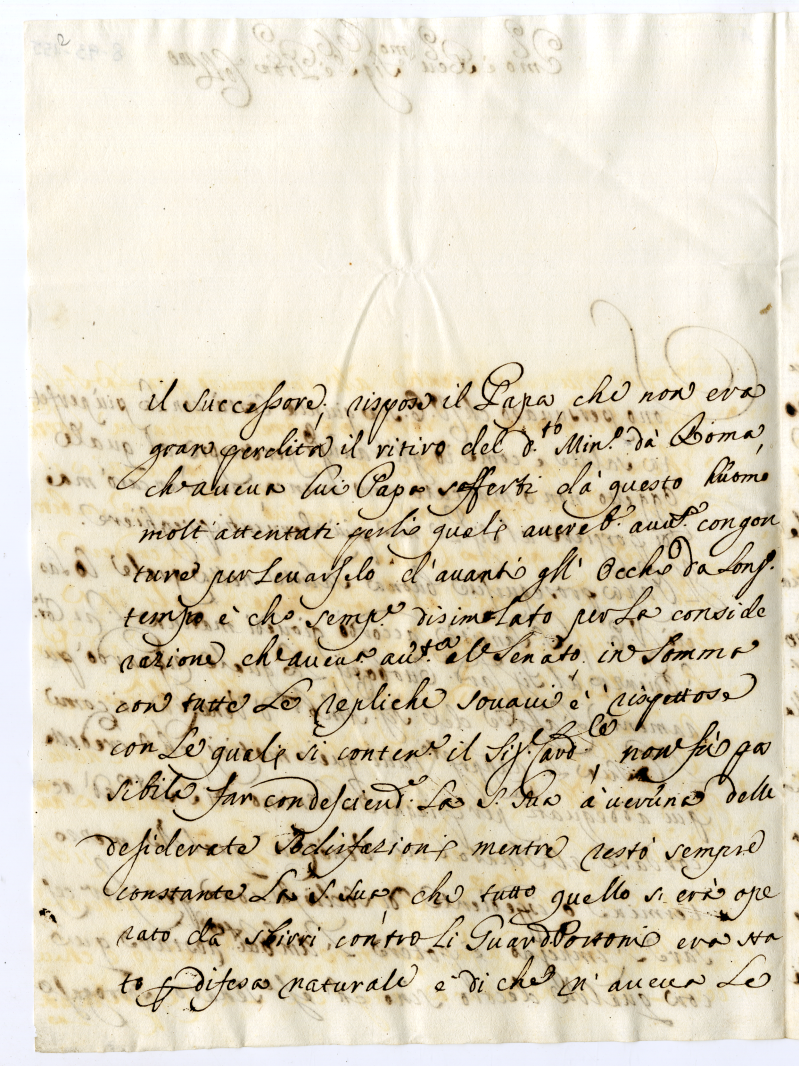 2
il successore, rispose il Papa, che non era
gran perdita il ritiro del d.to Min.o da Roma,
ch'aueua lui Papa sofferti da questo huomo
molt'attentati perli quali auereb.e aut.e congon
ture per leuarselo d'auanti gl'Occhi da long.o
tempo è che semp.e disimolato per la conside
razione ch'aueua aut.a al Senato, in somma
con tutte le repliche souaui è rispettose
con le quali si conten.e il Sig.r Card.le, non fù pos
sibile far condesciend.e la S. Sua à ueruna delle
desiderate sodisfazioni mentre restò sempre
constante la S. Sua che tutto quello si era ope
rato da sbirri contro li Guard Portoni era sta
to p difesa naturale e di che n'aueua le